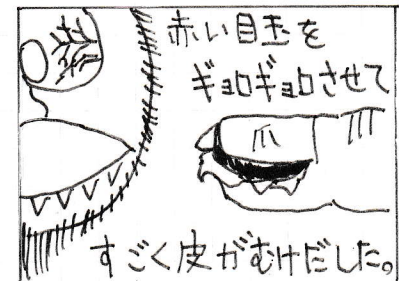 赤い目玉を
ギョロギョロさせて
爪
すごく皮がむけだした。